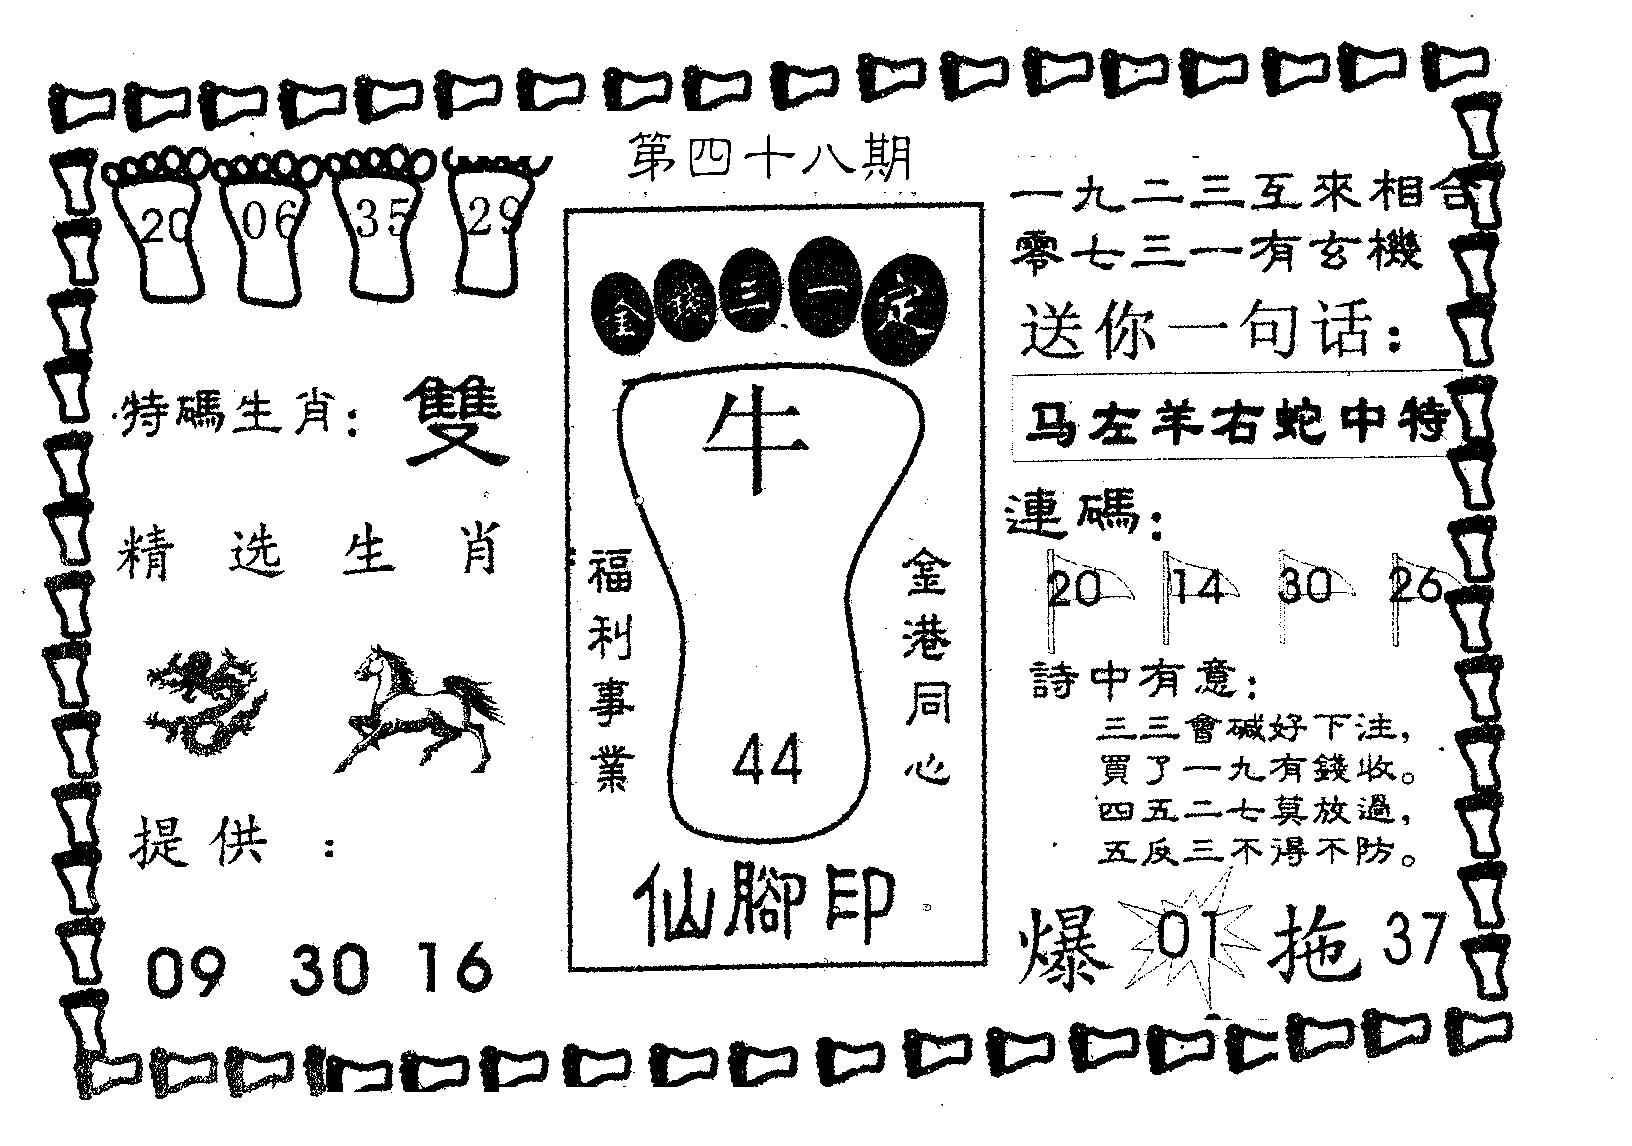 第四十八期
20 06 35 29
特碼生肖：雙
精选生肖
提供：
09 30 16
金錢三一定
牛
福利事業
金港同心
44
仙腳印
一九二三互來相合
零七三一有玄機
送你一句话：
马左羊右蛇中特
連碼：
20 14 30 26
詩中有意：
三三會碱好下注，
買了一九有錢收。
四五二七莫放過，
五反三不得不防。
爆 01 拖 37